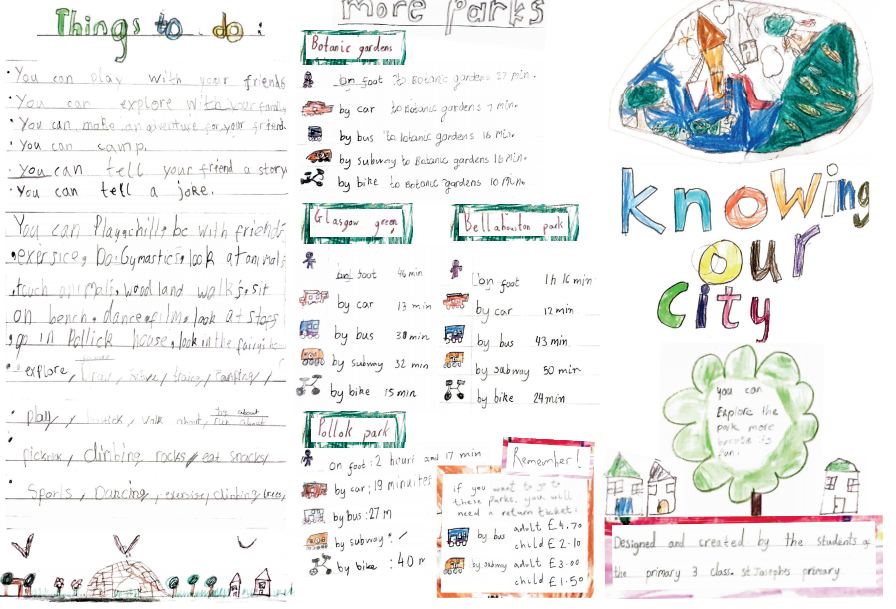 Things to do:
• You can play with your friends
• You can explore with your family
• You can make an adventure for your friend.
• You can camp.
• You can tell your friend a story
• You can tell a joke.
You can Play, chill, be with friends
• exersice, Do Gymastics, look at animals
, touch animals, wood land walks, sit
on bench, dance, film, look at stars
, go in Pollick house, look in the
• explore,
• play / walk about,
picknick, climbing rocks / eat snacks,
• Sports, Dancing, exersise, climbing trees,
more parks
Botanic gardens
on foot to Botanic gardens 27 min.
by car to Botanic gardens 7 min.
by bus to botanic gardens 16 Min.
by subway to Botanic gardens 16 Min.
by bike to Botanic gardens 10 Min.
Glasgow green
on foot 46 min
by car 13 min
by bus 30 min
by subway 32 min
by bike 15 min
Bellahouston park
on foot 1h 16 min
by car 12 min
by bus 43 min
by subway 50 min
by bike 24 min
Pollok park
on foot: 2 hours and 17 min
by car: 19 minuites
by bus: 27 m
by subway: /
by bike: 40 m
Remember!
if you want to go to
these parks, you will
need a return ticket:
by bus adult £4.70
child £2.10
by subway adult £3.00
child £1.50
Knowing
our
city
you can
Explore the
park more
because its
fun.
Designed and created by the students of
the primary 3 class. St Josephs primary.